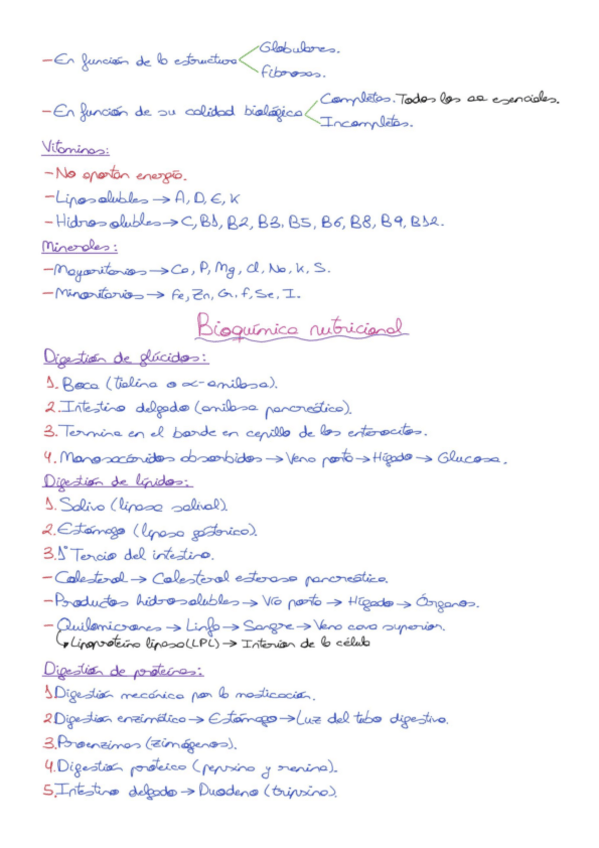 -En función de la estructura
Globulares.
Fibrosas.
-En función de su calidad biológica
Completas. Todos los aa esenciales.
Incompletas.
Vitaminas:
-No aportan energía.
-Liposolubles → A, D, E, K
-Hidrosolubles → C, B1, B2, B3, B5, B6, B8, B9, B12.
Minerales:
-Mayoritarios → Ca, P, Mg, Cl, Na, K, S.
-Minoritarios → Fe, Zn, Cr, F, Se, I.
Bioquímica nutricional
Digestión de glúcidos:
1. Boca (tialina o α-amilasa).
2. Intestino delgado (amilasa pancreática).
3. Termina en el borde en cepillo de los enterocitos.
4. Monosacáridos absorbidos → Vena porta → Hígado → Glucosa.
Digestión de lípidos:
1. Saliva (lipasa salival).
2. Estómago (lipasa gástrica).
3. 1º Tercio del intestino.
-Colesterol → Colesterol esterasa pancreática.
-Productos hidrosolubles → Vía porta → Hígado → Órganos.
-Quilomicrones → Linfa → Sangre → Vena cava superior.
Lipoproteína lipasa (LPL) → Interior de la célula
Digestión de proteínas:
1. Digestión mecánica por la masticación.
2 Digestión enzimática → Estómago → Luz del tubo digestivo.
3. Proenzimas (zimógenos).
4. Digestión proteica (pepsina y renina).
5. Intestino delgado → Duodeno (tripsina).